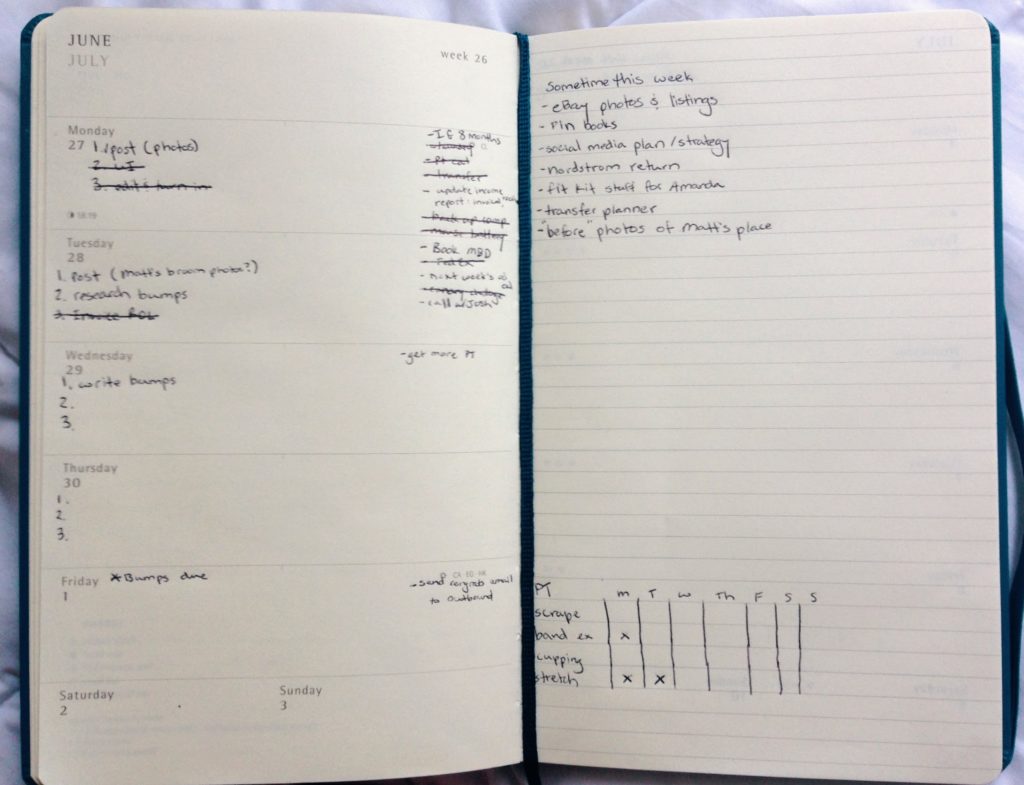 JUNE
JULY
week 26
Monday
27 1. post (photos)
2. UI
3. edit & turn in
- IG 8 months
- Pt cal
- transfer
- update income
report: invoiced,
- Back up comp
- mouse battery
18:19
Tuesday
28
1. post (matt's broom photo?)
2. research bumps
3. Invoice
- Book MBD
- FedEx
- next week's
- call w/Josh
Wednesday
29
1. write bumps
2.
3.
- get more PT
Thursday
30
1.
2.
3.
Friday * Bumps due
1
CA · EG · HK
- send email
to outbound
Saturday
2
Sunday
3
Sometime this week
- eBay photos & listings
- Fin books
- social media plan / strategy
- nordstrom return
- fit kit stuff for Amanda
- transfer planner
- "before" photos of matt's place
PT m T W Th F S S
scrape
band ex x
cupping
stretch x x